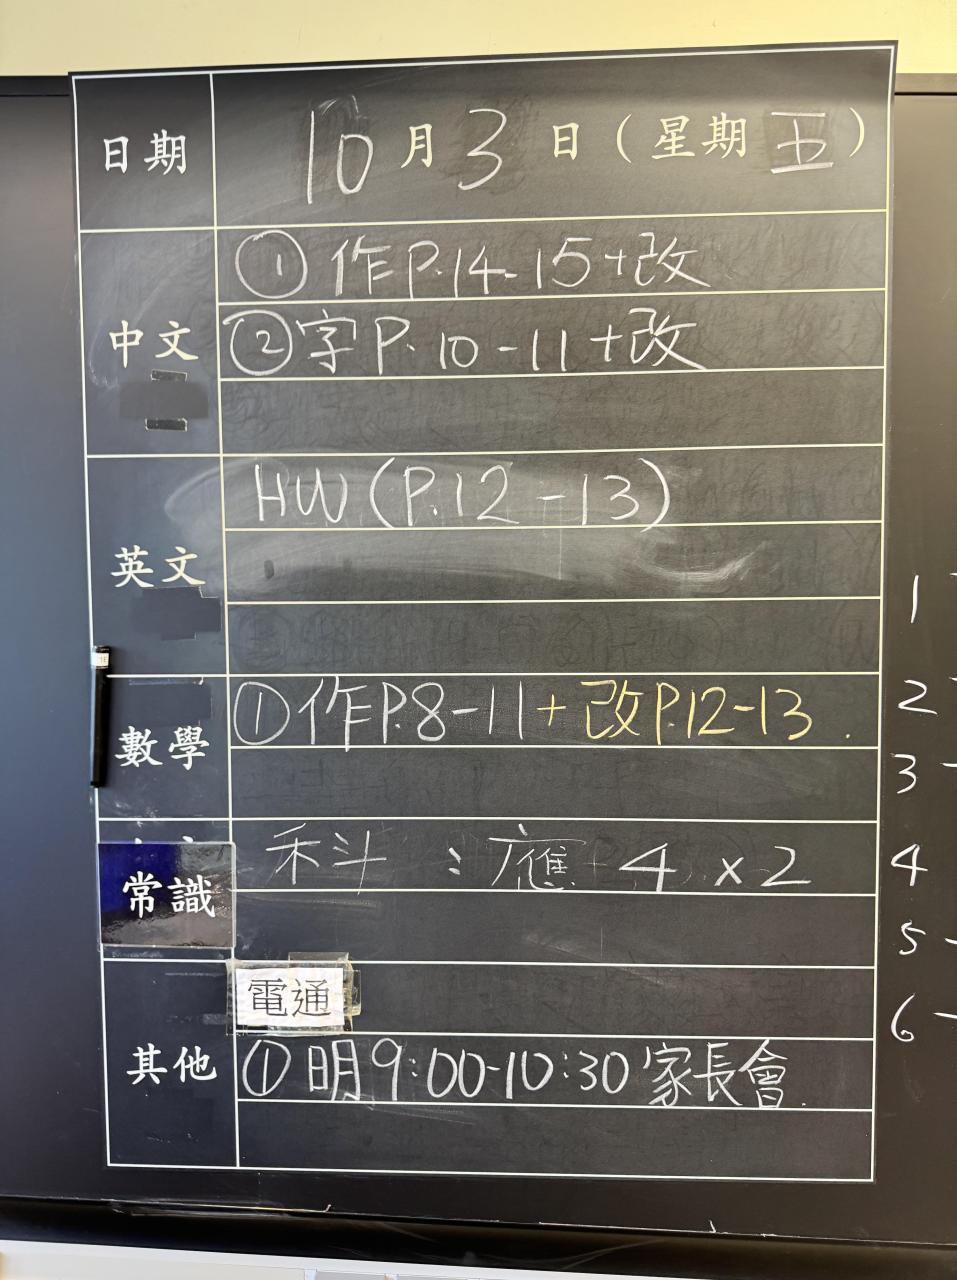 日期 10月3日（星期五）
中文
①作P.14-15+改
②字P.10-11+改
英文
HW(P.12-13)
數學
①作P.8-11+改P.12-13.
常識
科：應 4 x2
其他
電通
①明9:00-10:30家長會.
1
2
3
4
5
6